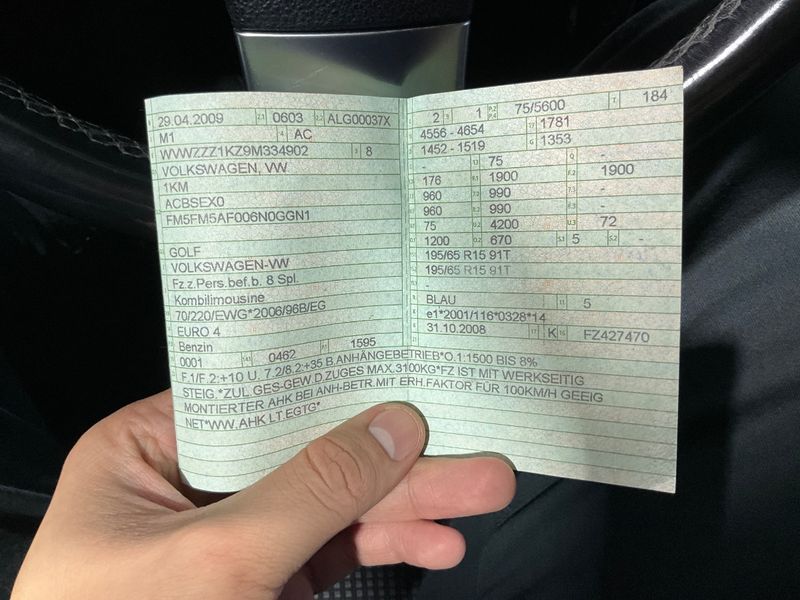 29.04.2009 0603 ALG00037X
M1 AC
WVWZZZ1KZ9M334902 8
VOLKSWAGEN, VW
1KM
ACBSEX0
FM5FM5AF006N0GGN1
GOLF
VOLKSWAGEN-VW
Fz.z.Pers.bef.b. 8 Spl.
Kombilimousine
70/220/EWG*2006/96B/EG
EURO 4
Benzin
0001 0462 1595
2 1 75/5600 184
4556 - 4654 1781
1452 - 1519 1353
- 75 -
176 1900 1900
960 990 -
960 990 -
75 4200 72
1200 670 5 -
195/65 R15 91T
195/65 R15 91T
-
BLAU 5
e1*2001/116*0328*14
31.10.2008 K FZ427470
F.1/F.2:+10 U. 7.2/8.2:+35 B.ANHÄNGEBETRIEB*O.1:1500 BIS 8%
STEIG.*ZUL.GES-GEW.D.ZUGES MAX.3100KG*FZ IST MIT WERKSEITIG
MONTIERTER AHK BEI ANH-BETR.MIT ERH.FAKTOR FÜR 100KM/H GEEIG
NET*WW.AHK LT.EGTG*